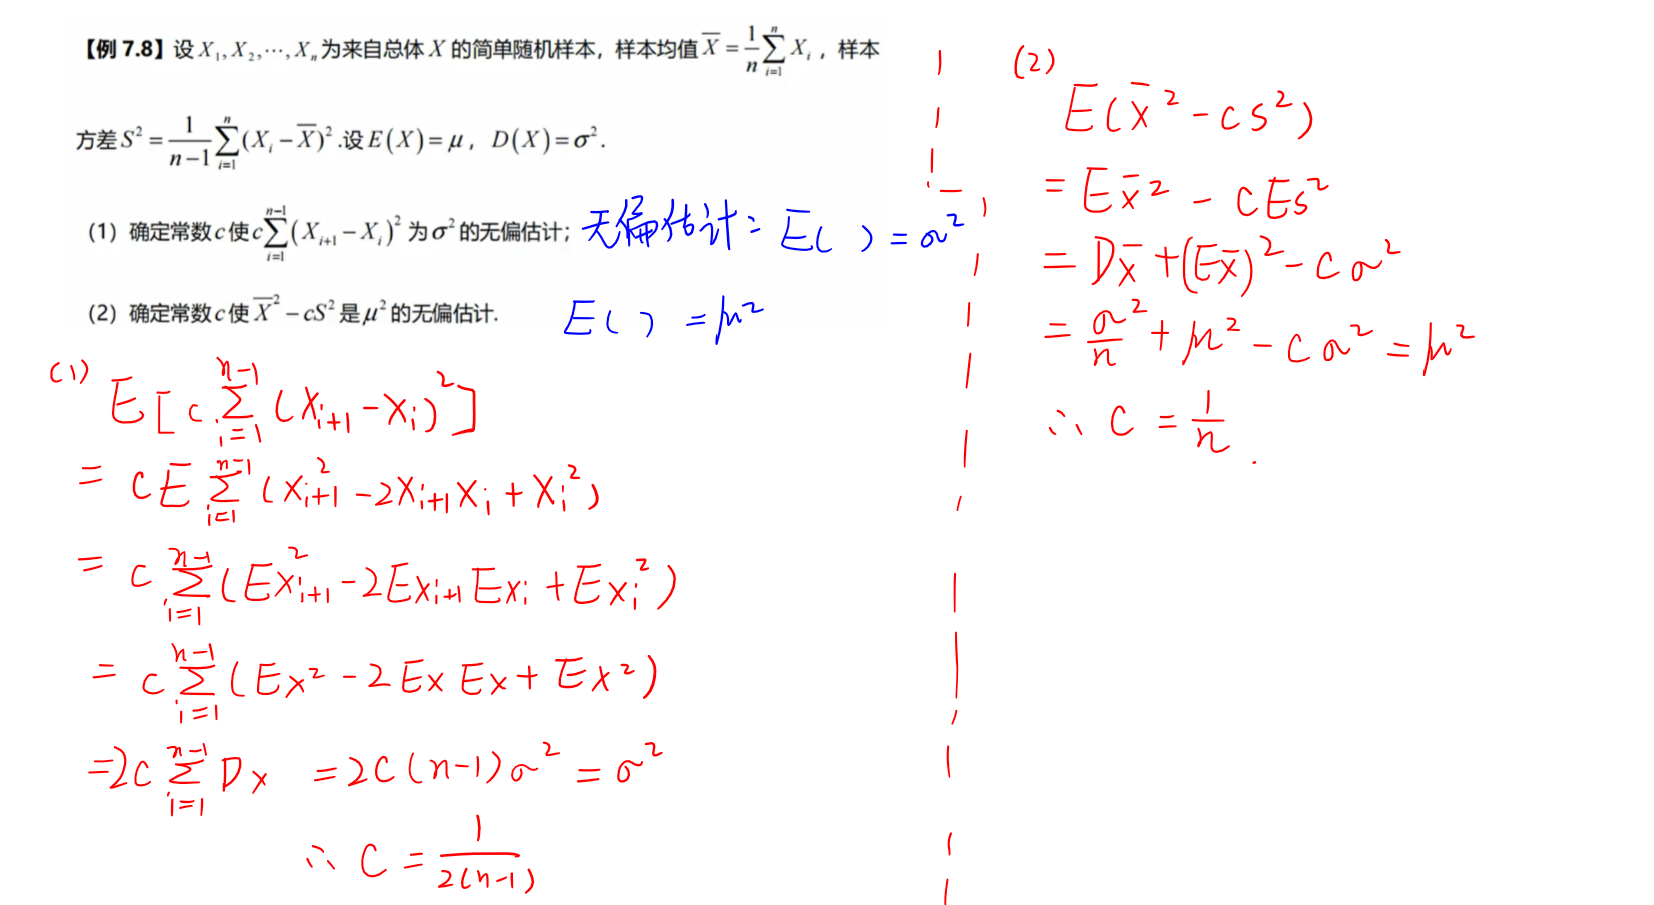 【例 7.8】设 X₁, X₂, ⋯, Xₙ 为来自总体 X 的简单随机样本，样本均值 X̅ = 1/n ∑_{i=1}^{n} Xᵢ ，样本
方差 S² = 1/(n−1) ∑_{i=1}^{n} (Xᵢ − X̅)² .设 E(X) = μ，D(X) = σ² .
（1）确定常数 c 使 c∑_{i=1}^{n−1} (X_{i+1} − Xᵢ)² 为 σ² 的无偏估计；
无偏估计：E( ) = σ²
（2）确定常数 c 使 X̅² − cS² 是 μ² 的无偏估计.
E( ) = μ²
(1) E[c ∑_{i=1}^{n-1} (X_{i+1} - Xᵢ)²]
= cE ∑_{i=1}^{n-1} (X²_{i+1} - 2X_{i+1}Xᵢ + Xᵢ²)
= c ∑_{i=1}^{n-1} (EX²_{i+1} - 2EX_{i+1} EXᵢ + EXᵢ²)
= c ∑_{i=1}^{n-1} (EX² - 2EX EX + EX²)
= 2c ∑_{i=1}^{n-1} DX = 2c(n-1)σ² = σ²
∴ C = 1/(2(n-1))
(2)
E(X̅² - cS²)
= EX̅² - cES²
= DX̅ + (EX̅)² - cσ²
= σ²/n + μ² - cσ² = μ²
∴ C = 1/n .